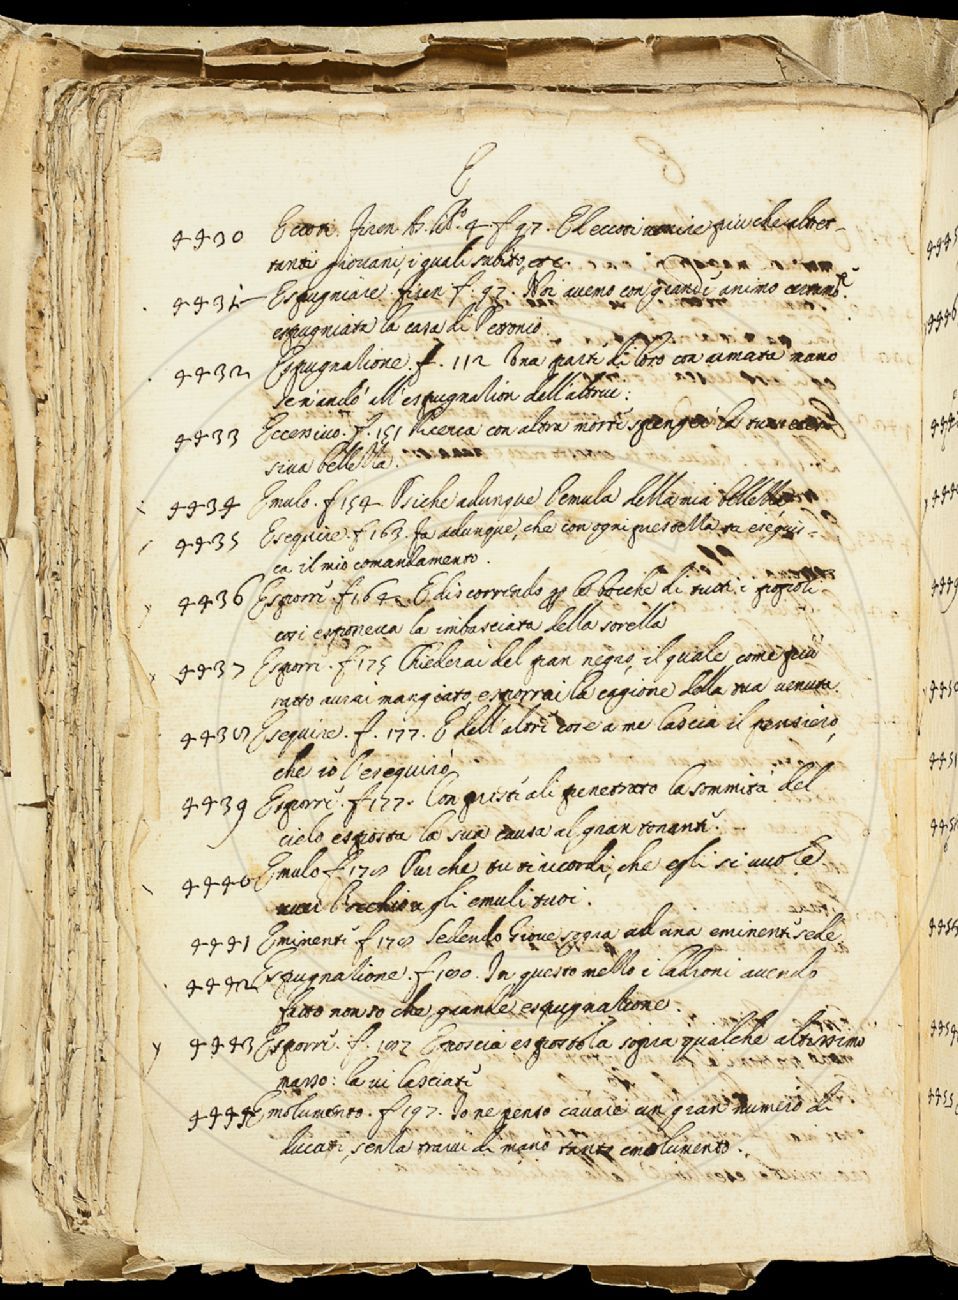 E
4430 Eccoti. Firen As. lib. 4. f. 97. Ed eccoti venire più che altret-
tanti giovani, i quali subito, etc.
4431 Espugniare. firen f. 97. Noi avemo con grande animo
espugniata la casa di Petronio.
4432 Espugnazione. f. 112 Una parte di loro con armata mano
se n'andò all'espugnazion dell'altrui:
4433 Eccessivo. f. 151 ricerca con altra morte spenger la tua
siva bellezza.
4434 Emulo. f. 154 Psiche adunque l'emula della mia bellezza
4435 Eseguire. f. 163. Fa adunque, che con ogni prestezza tu esequis-
ca il mio comandamento.
4436 Esporre. f. 164. E discorrendo per le bocche di tutti i popoli
così esponeva la imbasciata della sorella
4437 Esporre. f. 175 Chiederai del pan negro, il quale, come più
ratto aurai mangiato, esporrai la cagione della tua venuta.
4438 Eseguire. f. 177. E dell'altre cose a me lascia il pensiero,
che io l'esequirò
4439 Esporre. f. 177. Con preste ali penetrato la sommità del
cielo esposta la sua causa al gran tonante.
4440 Emulo f. 178 Pur che tu ti ricordi, che egli si vuole
gli emuli tuoi.
4441 Eminente f. 178 Sedendo Giove sopra ad una eminente sede
4442 Espugnazione. f. 180. In questo mezzo i ladroni avendo
fatto non so che grande espugnazione.
4443 Esporre. f. 187 E poscia espostola sopra qualche altissimo
masso: la vi lasciate
4444 Emolumento. f. 197. Io ne penso cavare un gran numero di
ducati, senza trarvi di mano tante emolumento.